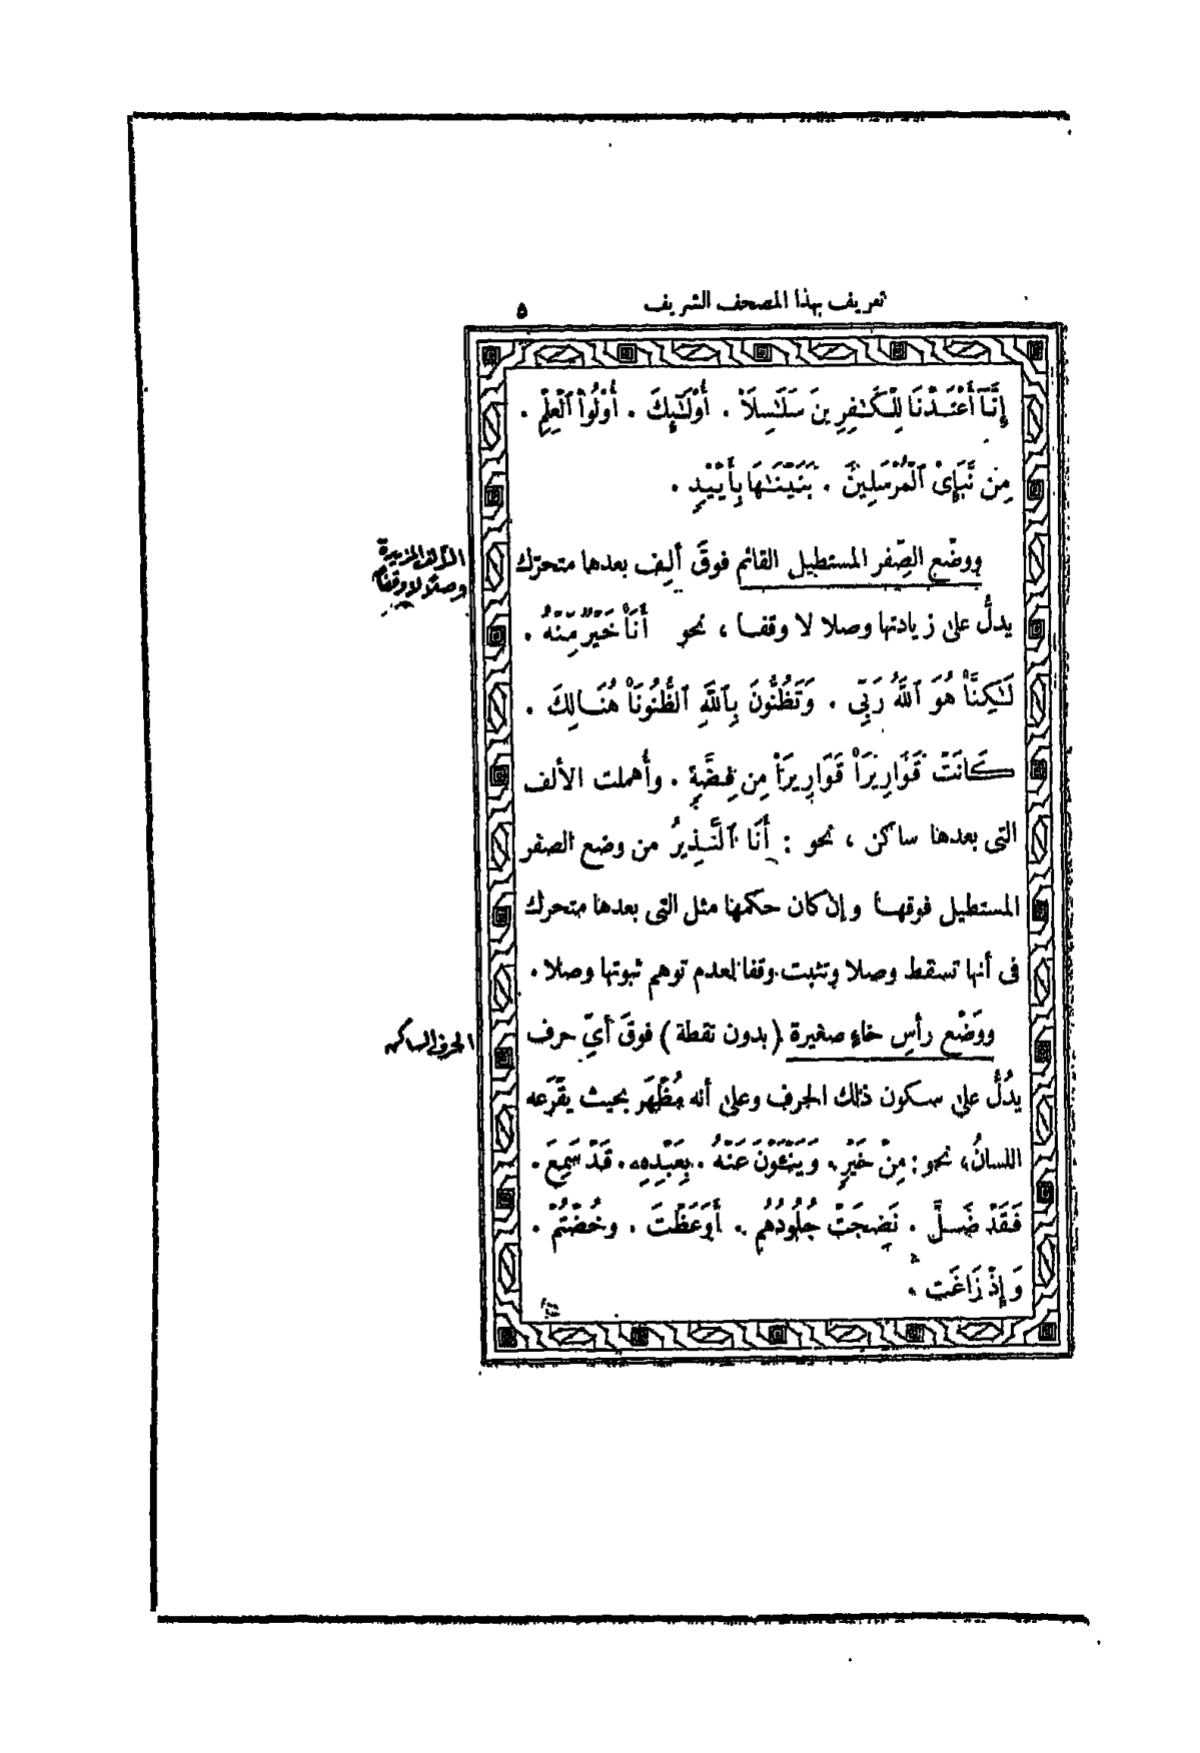 تعريف بهذا المصحف الشريف ٥
إِنَّآ أَعْتَدْنَا لِلْكَٰفِرِينَ سَلَٰسِلَا۟ . أُو۟لَٰٓئِكَ . أُو۟لُوا۟ ٱلْعِلْمِ .
مِن نَّبَإِى۟ ٱلْمُرْسَلِينَ . بَنَيْنَٰهَا بِأَيْي۟دٍ .
ووضْع الصِّفر المستطيل القائم فوقَ ألِف بعدها متحرّك
الألف المزيدة
وصلاً لا وقفاً
يدلُّ على زيادتها وصلا لا وقفا ، نحو أَنَا۠ خَيْرٌ مِّنْهُ .
لَّٰكِنَّا۠ هُوَ ٱللَّهُ رَبِّى . وَتَظُنُّونَ بِٱللَّهِ ٱلظُّنُونَا۠ هُنَالِكَ .
كَانَتْ قَوَارِيرَا۠ قَوَارِيرَا۟ مِن فِضَّةٍ . وأُهملت الألف
التى بعدها ساكن ، نحو : أَنَا ٱلنَّذِيرُ من وضع الصفر
المستطيل فوقها وإن كان حكمها مثل التى بعدها متحرك
فى أنها تسقط وصلا وتثبت وقفا لعدم توهم ثبوتها وصلا .
ووَضْع رأسِ خاءٍ صغيرة (بدون نقطة) فوقَ أىِّ حرف
الحرف الساكن
يدُلُّ على سكون ذلك الحرف وعلى أنه مُظْهَر بحيث يقْرَعه
اللسانُ، نحو : مِنْ خَيْرٍ . وَيَنْـَٔوْنَ عَنْهُ . بِعَبْدِهِۦ . قَدْ سَمِعَ .
فَقَدْ ضَلَّ . نَضِجَتْ جُلُودُهُم . أَوَعَظْتَ . وخُضْتُمْ .
وَإِذْ زَاغَتِ .